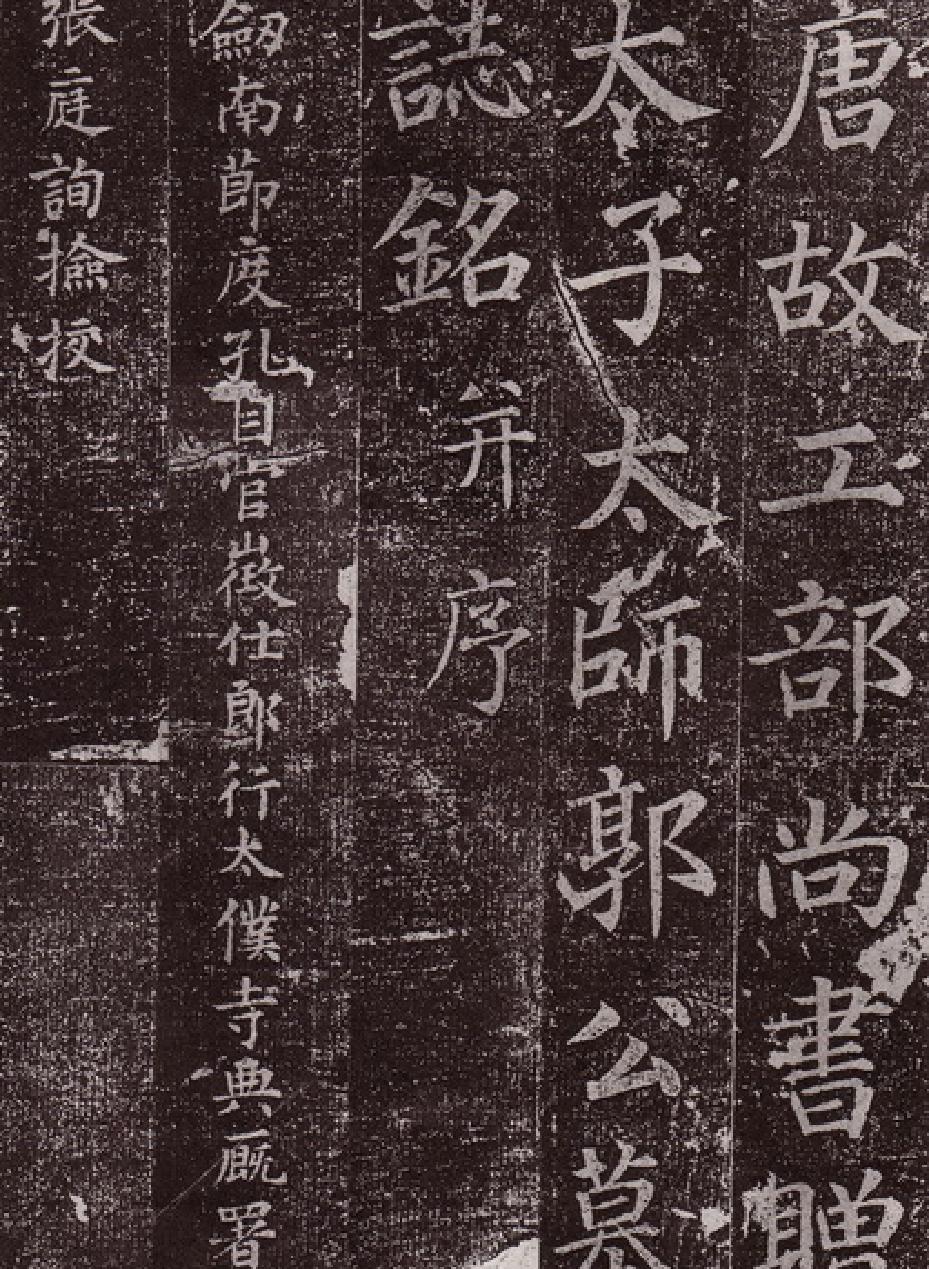 唐故工部尚書贈
太子太師郭公墓
誌銘并序
劔南節度孔目官徵仕郎行太僕寺典廐署
張庭詢撿挍